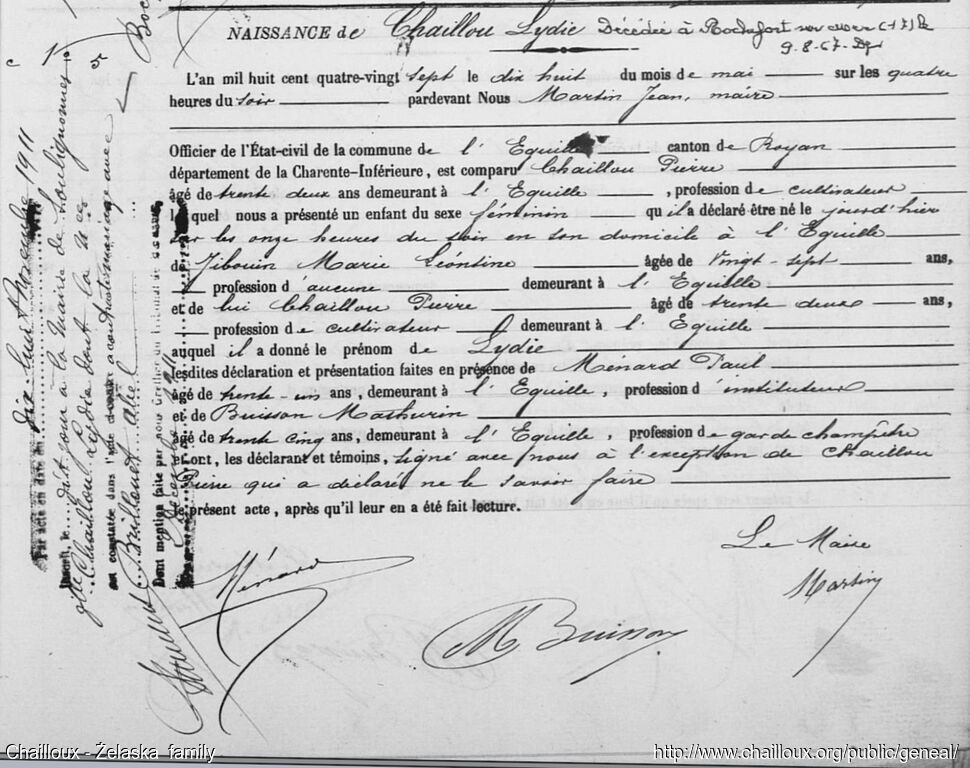 NAISSANCE de Chaillou Lydie Décédée à Rochefort sur mer (17) le
9-8-67
L'an mil huit cent quatre-vingt sept le dix huit du mois de mai sur les quatre
heures du soir pardevant Nous Martin Jean, maire
Officier de l'État-civil de la commune de l'Eguille canton de Royan
département de la Charente-Inférieure, est comparu Chaillou Pierre
âgé de trente deux ans demeurant à l'Eguille, profession de cultivateur
lequel nous a présenté un enfant du sexe féminin qu'il a déclaré être né le jourd'hier
sur les onze heures du soir en son domicile à l'Eguille
de Marie Léontine âgée de vingt-sept ans,
profession d'aucune demeurant à l'Eguille
et de lui Chaillou Pierre âgé de trente deux ans,
profession de cultivateur demeurant à l'Eguille
auquel il a donné le prénom de Lydie
lesdites déclaration et présentation faites en présence de Ménard Paul
âgé de trente-un ans, demeurant à l'Eguille, profession d'instituteur
et de Buisson Mathurin
âgé de trente cinq ans, demeurant à l'Eguille, profession de garde champêtre
et ont, les déclarant et témoins, signé avec nous à l'exception de Chaillou
Pierre qui a déclaré ne le savoir faire
le présent acte, après qu'il leur en a été fait lecture.
Le Maire
Martin
Ménard
M Buisson
Par acte en date du dix huit 1911
Chaillou Lydie dont la
a contracté mariage avec
Dont mention faite par nous Greffier
Chailloux - Żelaska family
http://www.chailloux.org/public/geneal/